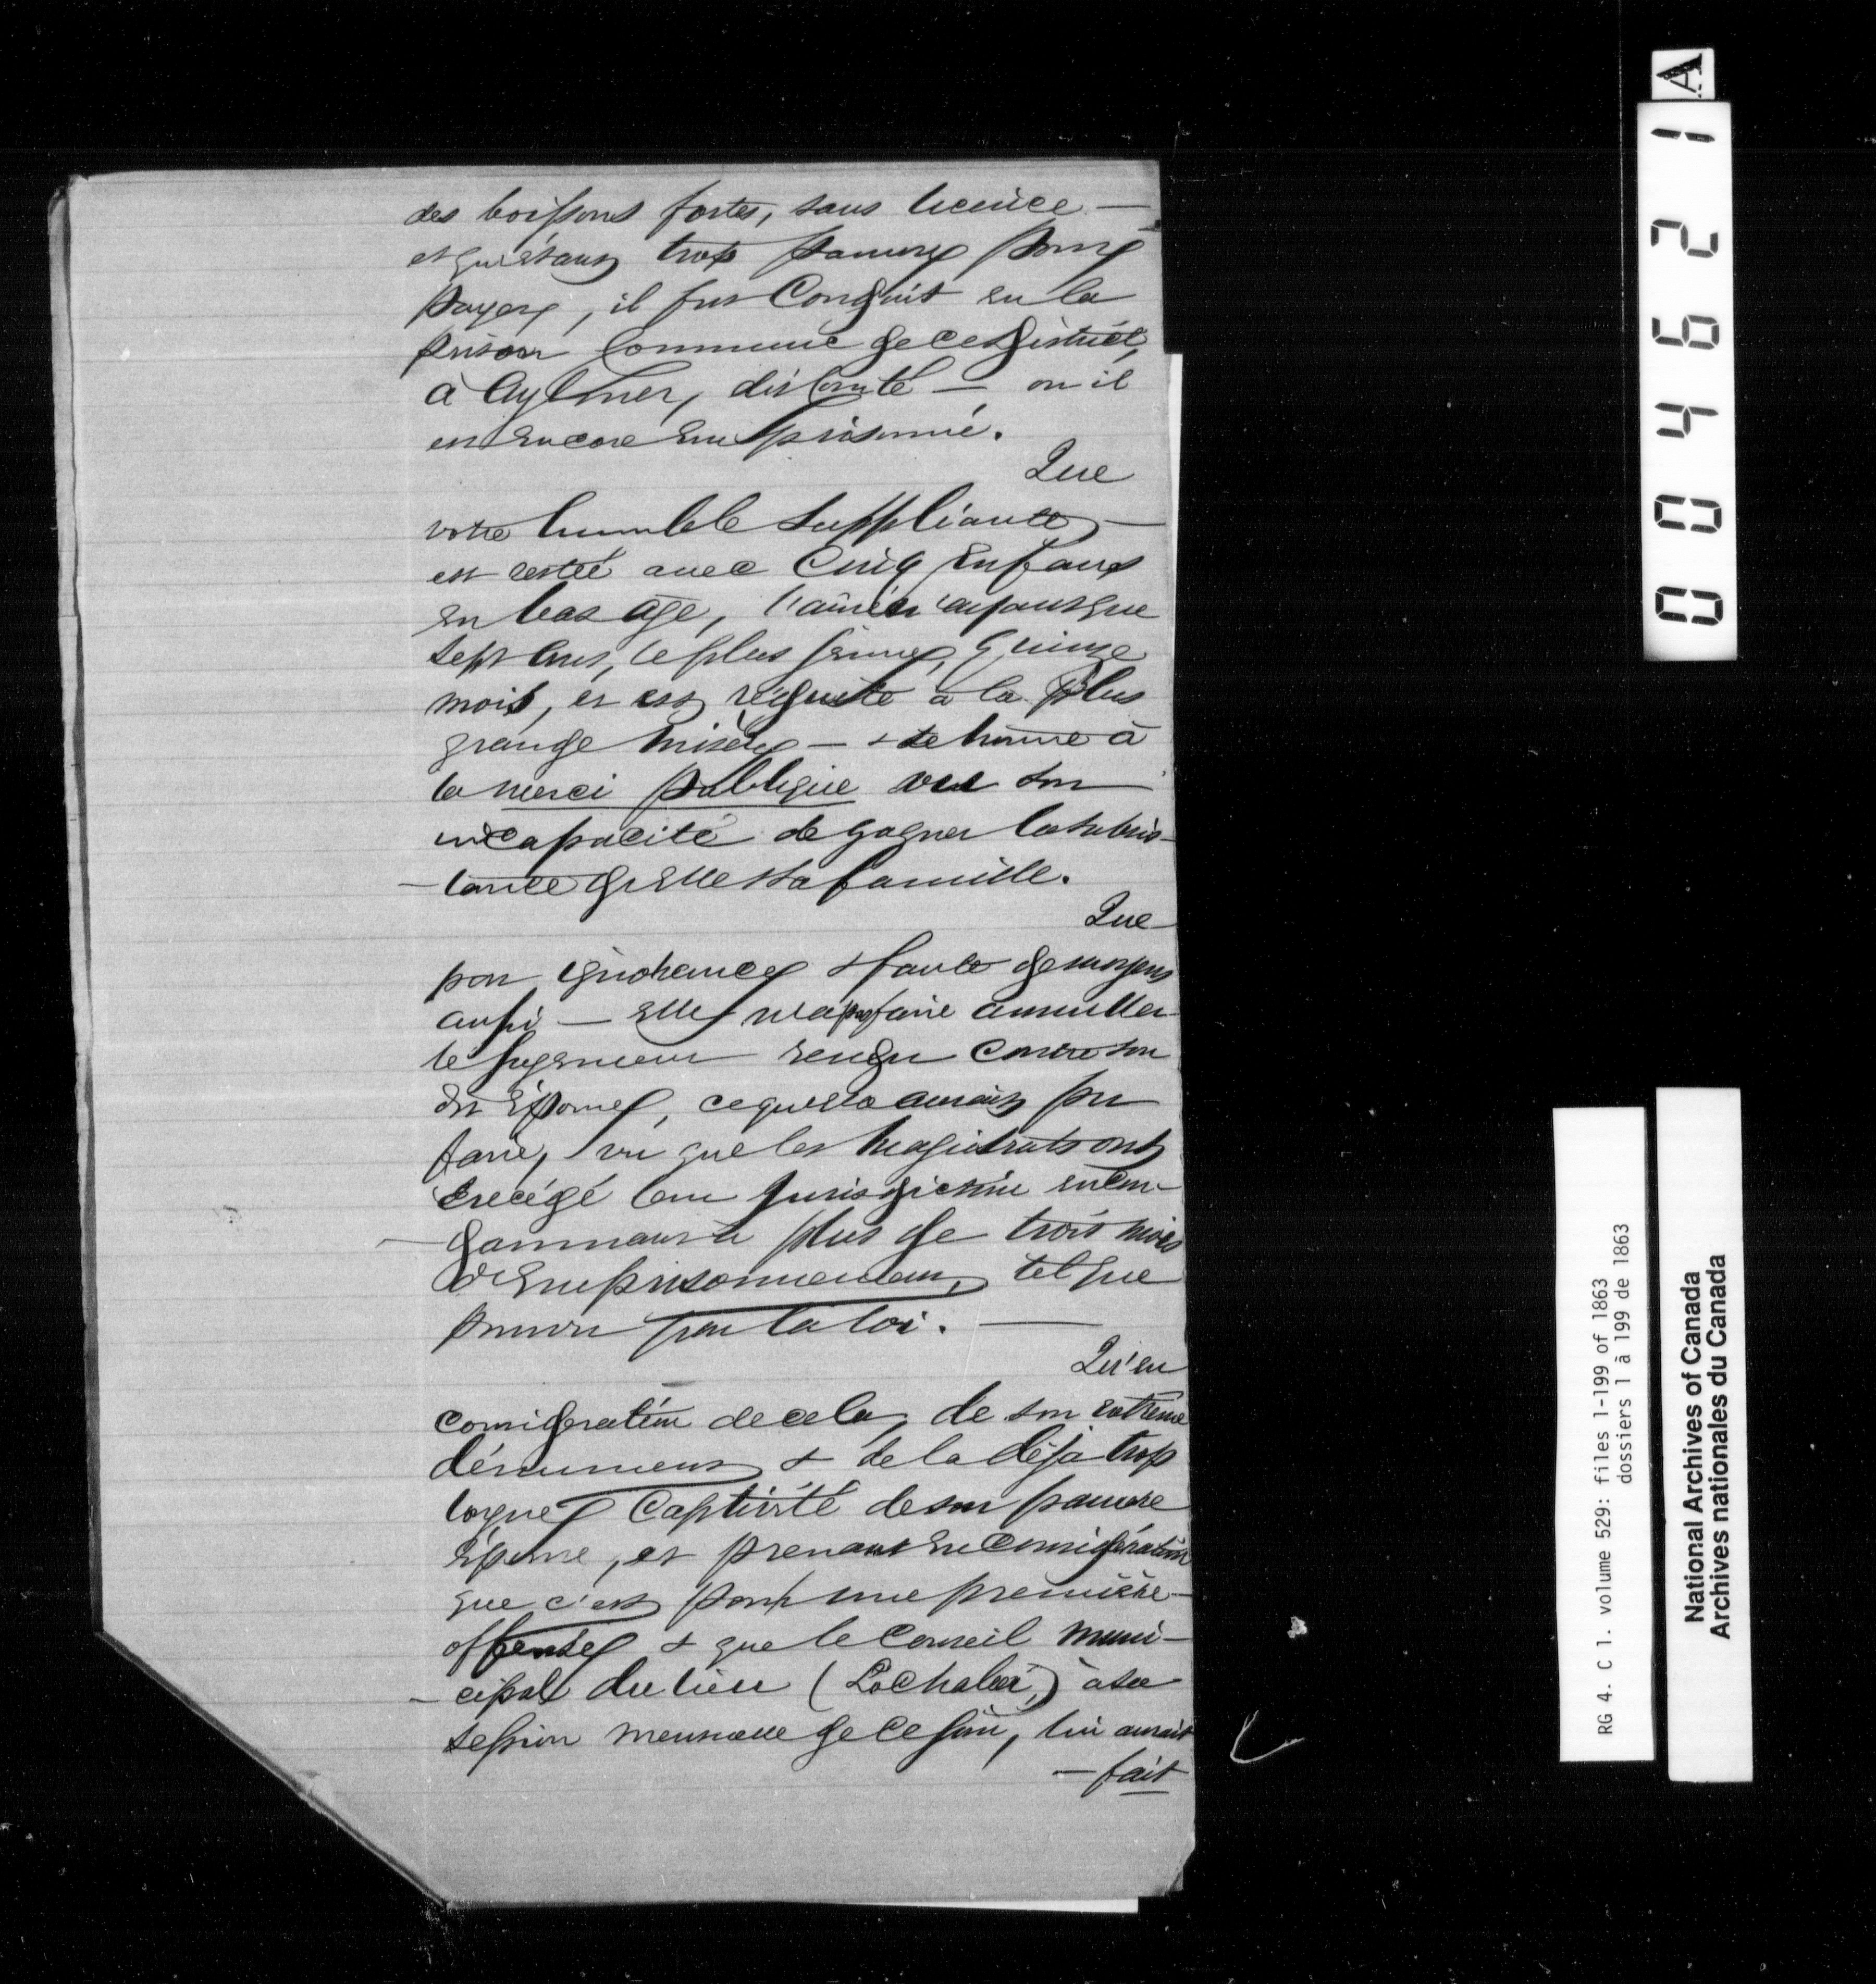 des boissons fortes, sans licence —
et qu'étant trop pauvre pour
payer, il fut Conduit en la
prison Commune de ce district,
à Aylmer, dit Comté — où il
est encore emprisonné.
Que
votre humble Suppliante —
est restée avec Cinq Enfans
en bas age, l'ainée n'ayant que
sept Ans, le plus jeune, quinze
mois, et est réduite à la plus
grande misère — + se trouve à
la merci publique vu son
incapacité de gagner la subsis-
-tance d'Elle & sa famille.
Que
par ignorance & faute de moyens
aussi — Elle n'a pas faire annuller
le Jugement rendu Contre son
dit Époux, ce qu'elle aurait pu
faire, vu que les Magistrats ont
excédé leur Jurisdiction en Con-
-damnant à plus de trois mois
d'Emprisonnement, tel que
pourvu par la loi. —
Qu'en
considération de cela, de son extrême
dénument & de la déja trop
longue Captivité de son pauvre
Époux, et prenant en Considération
que c'est pour une première
offense & que le Conseil Muni-
-cipal du lieu (Lochaber,) à sa
session mensuelle de ce jour, lui aurait
— fait
A
004621
RG 4. C 1. volume 529: files 1-199 of 1863
dossiers 1 à 199 de 1863
National Archives of Canada
Archives nationales du Canada